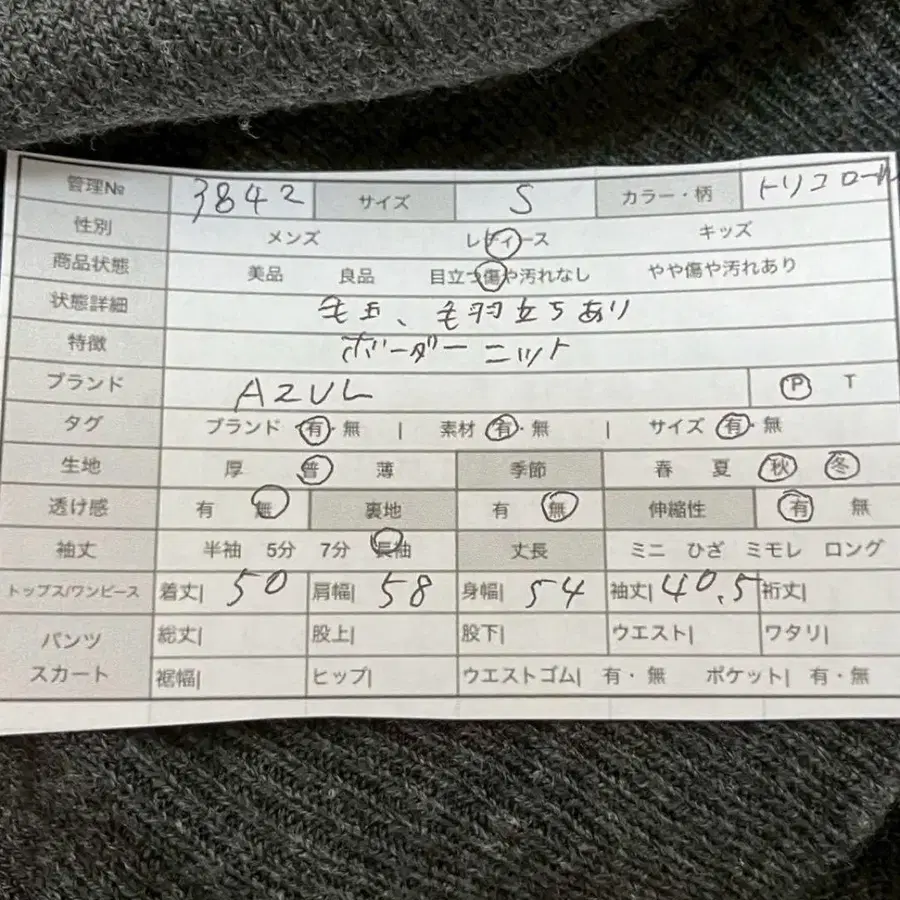 管理№ 3842 サイズ S カラー・柄 トリコロール
性別 メンズ レディース キッズ
商品状態 美品 良品 目立つ傷や汚れなし やや傷や汚れあり
状態詳細 毛玉、毛羽立ちあり
特徴 ボーダーニット
ブランド AZUL P T
タグ ブランド 有・無 | 素材 有・無 | サイズ 有・無
生地 厚 普 薄 季節 春 夏 秋 冬
透け感 有 無 裏地 有 無 伸縮性 有 無
袖丈 半袖 5分 7分 長袖 丈長 ミニ ひざ ミモレ ロング
トップス/ワンピース 着丈| 50 肩幅| 58 身幅| 54 袖丈| 40.5 裄丈|
パンツ スカート 総丈| 股上| 股下| ウエスト| ワタリ|
裾幅| ヒップ| ウエストゴム| 有・無 ポケット| 有・無